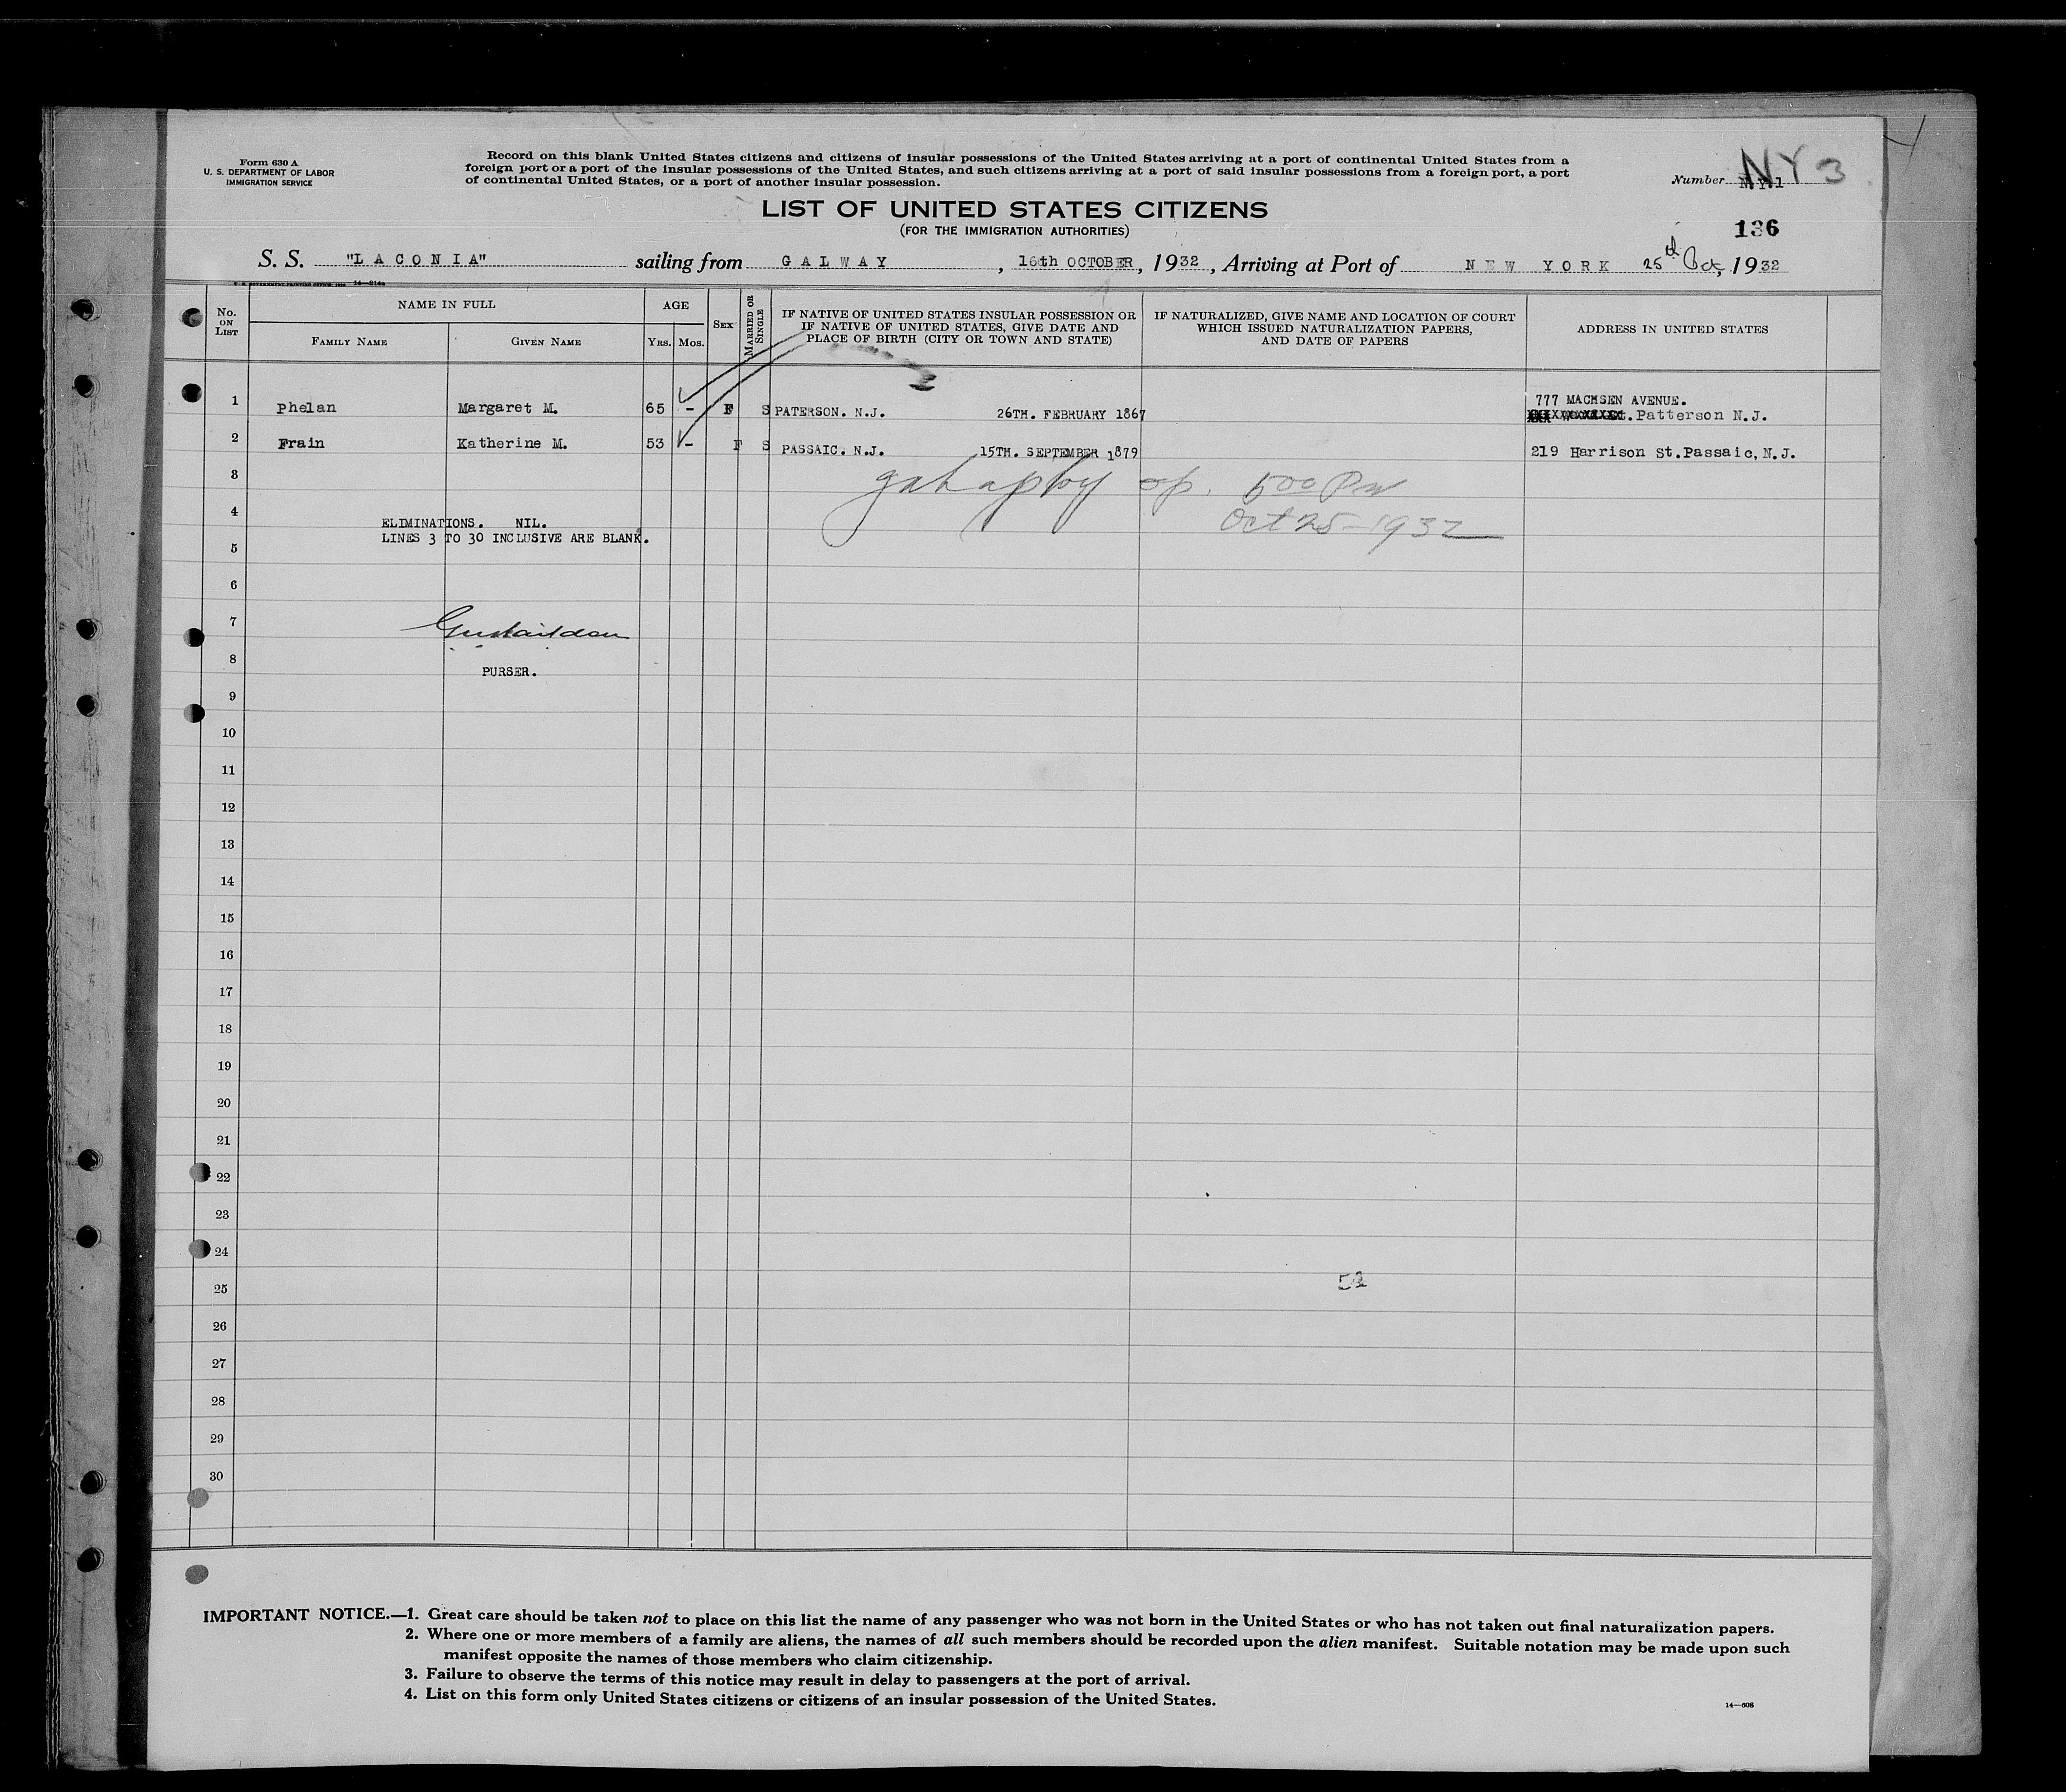 Form 630 A
U. S. DEPARTMENT OF LABOR
IMMIGRATION SERVICE
Record on this blank United States citizens and citizens of insular possessions of the United States arriving at a port of continental United States from a
foreign port or a port of the insular possessions of the United States, and such citizens arriving at a port of said insular possessions from a foreign port, a port
of continental United States, or a port of another insular possession.
NY 3
Number N.Y.1
LIST OF UNITED STATES CITIZENS
(FOR THE IMMIGRATION AUTHORITIES)
136
S. S. "LACONIA" sailing from GALWAY, 16th OCTOBER, 1932, Arriving at Port of NEW YORK 25th Oct, 1932
No. ON LIST
NAME IN FULL
FAMILY NAME
GIVEN NAME
AGE
YRS.
MOS.
SEX
MARRIED OR SINGLE
IF NATIVE OF UNITED STATES INSULAR POSSESSION OR
IF NATIVE OF UNITED STATES, GIVE DATE AND
PLACE OF BIRTH (CITY OR TOWN AND STATE)
IF NATURALIZED, GIVE NAME AND LOCATION OF COURT
WHICH ISSUED NATURALIZATION PAPERS,
AND DATE OF PAPERS
ADDRESS IN UNITED STATES
777 MACHSEN AVENUE.
1 Phelan Margaret M. 65 - F S PATERSON. N.J. 26TH. FEBRUARY 1867 Patterson N.J.
2 Frain Katherine M. 53 - F S PASSAIC. N.J. 15TH. SEPTEMBER 1879 219 Harrison St.Passaic,N.J.
3
500 PM
4
Oct 25-1932
ELIMINATIONS. NIL.
LINES 3 TO 30 INCLUSIVE ARE BLANK.
5
6
7
8
PURSER.
9
10
11
12
13
14
15
16
17
18
19
20
21
22
23
24
25
26
27
28
29
30
IMPORTANT NOTICE.—1. Great care should be taken not to place on this list the name of any passenger who was not born in the United States or who has not taken out final naturalization papers.
2. Where one or more members of a family are aliens, the names of all such members should be recorded upon the alien manifest. Suitable notation may be made upon such
manifest opposite the names of those members who claim citizenship.
3. Failure to observe the terms of this notice may result in delay to passengers at the port of arrival.
4. List on this form only United States citizens or citizens of an insular possession of the United States.